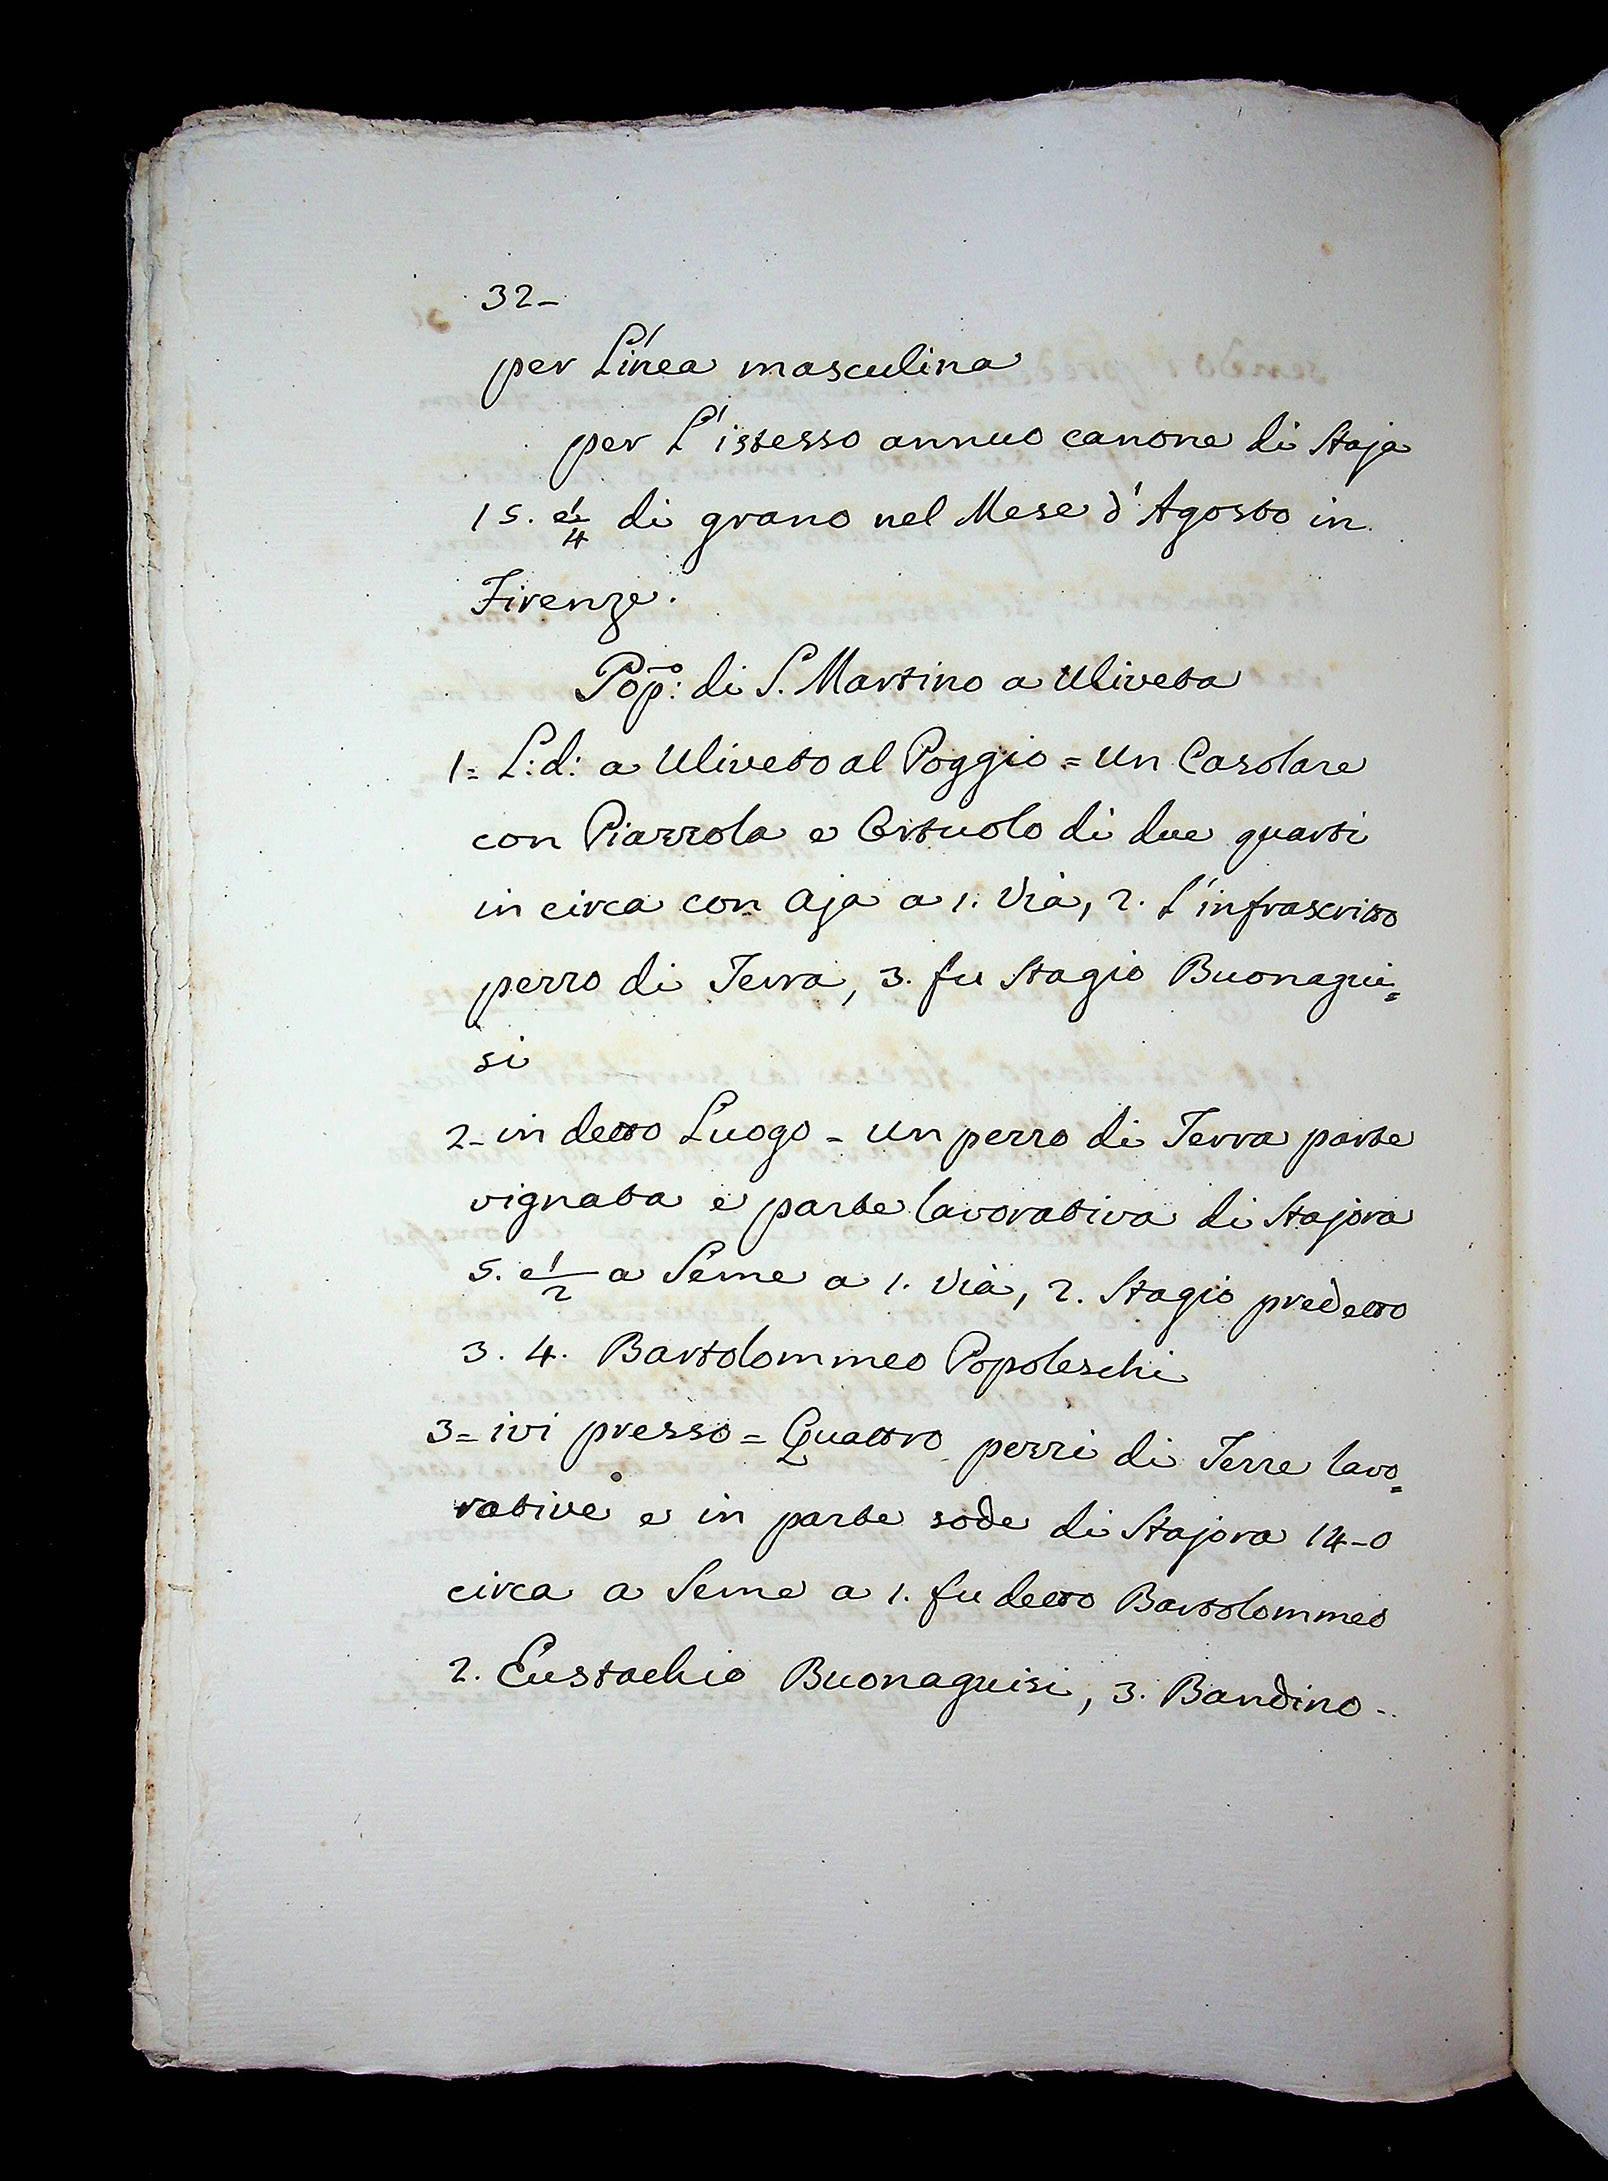 32-
per Linea masculina
per L'istesso annuo canone di Staja
15. e 1/4 di grano nel Mese d'Agosto in
Firenze.
Pop:o di S. Martino a Uliveta
1= L:d: a Uliveto al Poggio = Un Casolare
con Piazzola e Ortuolo di due quarti
in circa con Aja a 1. Via, 2. L'infrascritto
pezzo di Terra, 3. fu Stagio Buonagui=
si
2- in detto Luogo = Un pezzo di Terra parte
vignata e parte lavorativa di Stajora
5. e 1/2 a Seme a 1. Via, 2. Stagio predetto
3. 4. Bartolommeo Popoleschi
3= ivi presso = Quattro pezzi di Terre lavo=
rative e in parte sode di Stajora 14-0
circa a Seme a 1. fu detto Bartolommeo
2. Eustachio Buonaguisi, 3. Bandino-